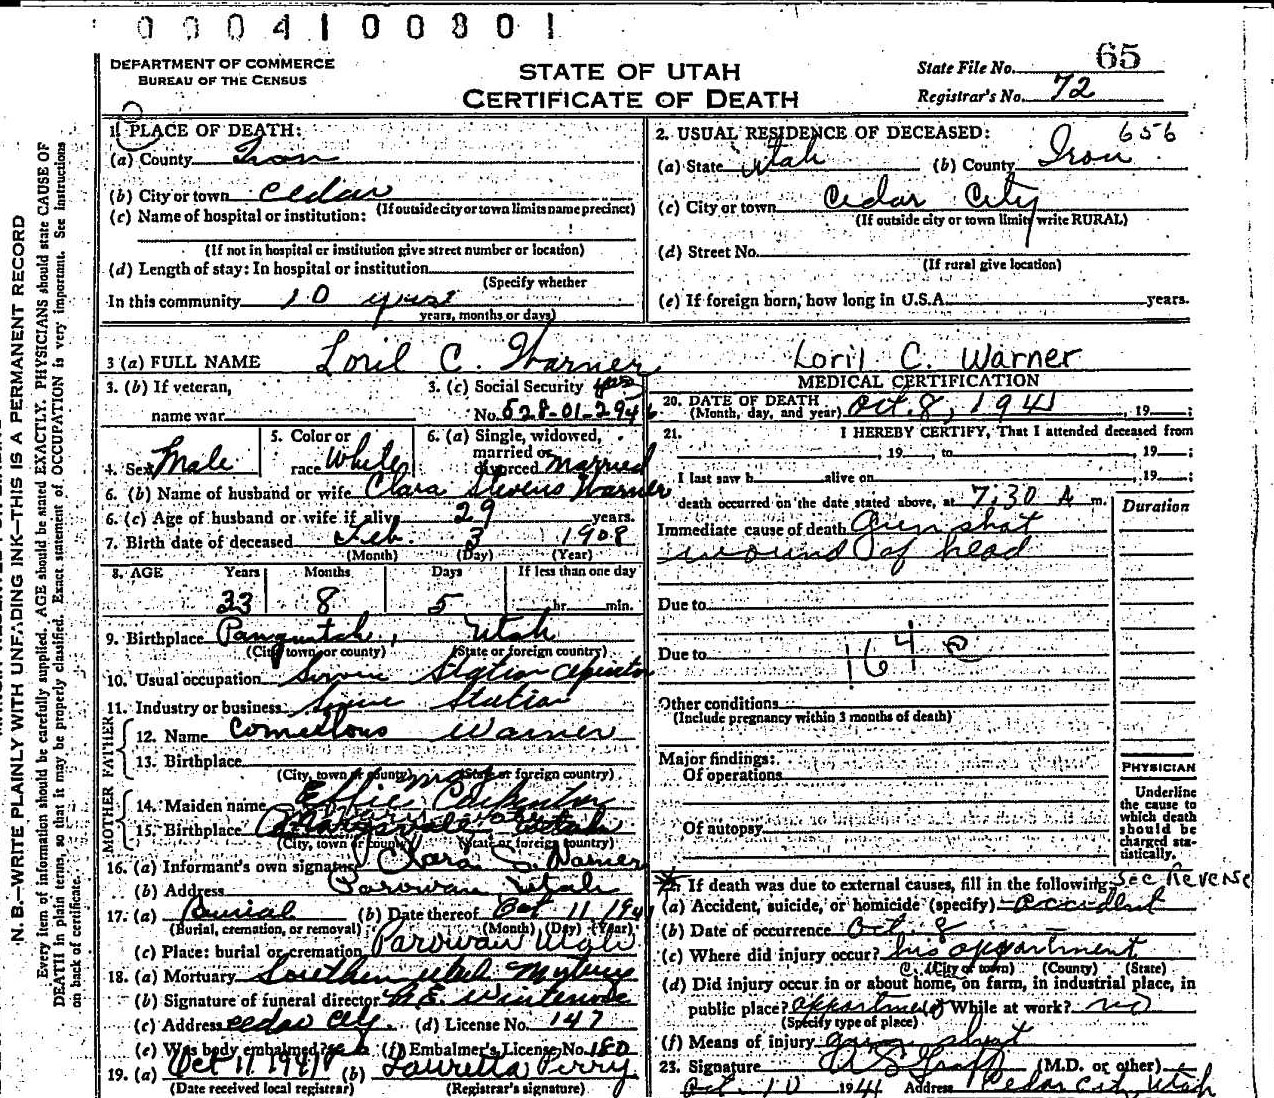 0004100801
DEPARTMENT OF COMMERCE
BUREAU OF THE CENSUS
STATE OF UTAH
CERTIFICATE OF DEATH
State File No. 65
Registrar's No. 72
N. B.—WRITE PLAINLY WITH UNFADING INK—THIS IS A PERMANENT RECORD
Every item of information should be carefully supplied. AGE should be stated EXACTLY. PHYSICIANS should state CAUSE OF
DEATH in plain terms, so that it may be properly classified. Exact statement of OCCUPATION is very important. See instructions
on back of certificate.
1. PLACE OF DEATH:
(a) County Iron
(b) City or town Cedar
(If outside city or town limits name precinct)
(c) Name of hospital or institution:
(If not in hospital or institution give street number or location)
(d) Length of stay: In hospital or institution
(Specify whether
In this community 10 years
years, months or days)
2. USUAL RESIDENCE OF DECEASED: 656
(a) State Utah (b) County Iron
(c) City or town Cedar City
(If outside city or town limits write RURAL)
(d) Street No.
(If rural give location)
(e) If foreign born, how long in U.S.A. years.
3 (a) FULL NAME Loril C. Warner
Loril C. Warner
3. (b) If veteran,
name war
3. (c) Social Security yes
No. 528-01-2946
4. Sex Male
5. Color or
race White
6. (a) Single, widowed,
married or
divorced married
6. (b) Name of husband or wife Clara Stevens Warner
6. (c) Age of husband or wife if alive 29 years.
7. Birth date of deceased Feb. 3 1908
(Month) (Day) (Year)
8. AGE Years Months Days If less than one day
33 8 5 hr. min.
9. Birthplace Panguitch, Utah
(City, town, or county) (State or foreign country)
10. Usual occupation Station operator
11. Industry or business Station
FATHER
12. Name Warner
13. Birthplace
(City, town or county) (State or foreign country)
MOTHER
14. Maiden name Effie Carpenter
15. Birthplace Marysvale Utah
(City, town or county) (State or foreign country)
16. (a) Informant's own signature Clara S. Warner
(b) Address Parowan Utah
17. (a) Burial (b) Date thereof Oct 11 1941
(Burial, cremation, or removal) (Month) (Day) (Year)
(c) Place: burial or cremation Parowan Utah
18. (a) Mortuary Southern Utah Mortuary
(b) Signature of funeral director
(c) Address Cedar City. (d) License No. 147
(e) Was body embalmed? yes (f) Embalmer's License No. 180
19. (a) Oct 11, 1941 (b) Lauretta Perry
(Date received local registrar) (Registrar's signature)
MEDICAL CERTIFICATION
20. DATE OF DEATH
(Month, day, and year) Oct. 8, 1941, 19 ;
21. I HEREBY CERTIFY, That I attended deceased from
, 19 , to , 19 ;
I last saw h alive on , 19 ;
death occurred on the date stated above, at 7:30 A m.
Duration
Immediate cause of death Gun shot
wound of head
Due to
Due to 164
Other conditions
(Include pregnancy within 3 months of death)
Major findings:
Of operations
Of autopsy
PHYSICIAN
Underline
the cause to
which death
should be
charged sta-
tistically.
22. If death was due to external causes, fill in the following: See Reverse
(a) Accident, suicide, or homicide (specify) accident
(b) Date of occurrence Oct. 8
(c) Where did injury occur? his appartment
(City or town) (County) (State)
(d) Did injury occur in or about home, on farm, in industrial place, in
public place? appartment (e) While at work? no
(Specify type of place)
(f) Means of injury gun shot
23. Signature (M.D. or other)
Oct. 10 1941 Address Cedar City, Utah